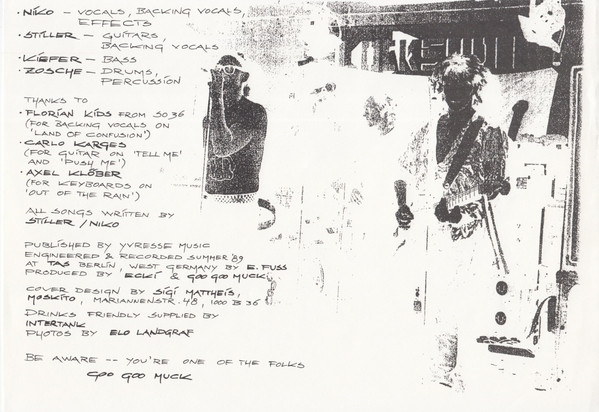 ·NIKO – VOCALS, BACKING VOCALS,
EFFECTS
·STILLER – GUITARS,
BACKING VOCALS
·KIEFER – BASS
ZOSCHE – DRUMS,
PERCUSSION
THANKS TO
·FLORIAN KIDS FROM SO 36
(FOR BACKING VOCALS ON
'LAND OF CONFUSION')
·CARLO KARGES
(FOR GUITAR ON 'TELL ME'
AND 'PUSH ME')
·AXEL KLÖBER
(FOR KEYBOARDS ON
'OUT OF THE RAIN')
ALL SONGS WRITTEN BY
STILLER / NIKO
PUBLISHED BY YVRESSE MUSIC
ENGINEERED & RECORDED SUMMER '89
AT TAS BERLIN, WEST GERMANY BY E. FUSS
PRODUCED BY ECKI & GOO GOO MUCK
COVER DESIGN BY SIGI MATTHEIS,
MOSKITO, MARIANNENSTR. 48, 1000 B 36
DRINKS FRIENDLY SUPPLIED BY
INTERTANK
PHOTOS BY ELO LANDGRAF
BE AWARE -- YOU'RE ONE OF THE FOLKS
GOO GOO MUCK